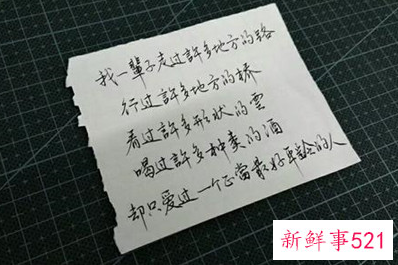 我一輩子走过許多地方的路
行过許多地方的桥
看过許多形状的雲
喝过許多种类的酒
却只爱过一个正當最好年龄的人
新鲜事521